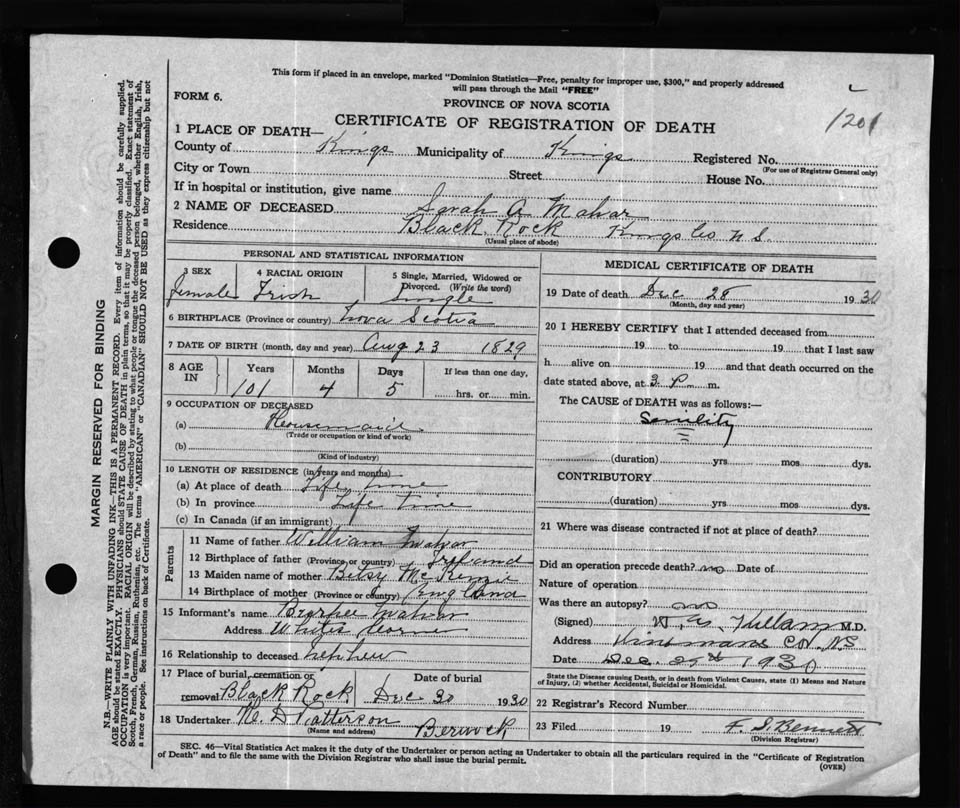 This form if placed in an envelope, marked "Dominion Statistics—Free, penalty for improper use, $300," and properly addressed
will pass through the Mail "FREE"
FORM 6.
PROVINCE OF NOVA SCOTIA
1201
CERTIFICATE OF REGISTRATION OF DEATH
1 PLACE OF DEATH—
County of Kings Municipality of Kings Registered No.
(For use of Registrar General only)
City or Town Street House No.
If in hospital or institution, give name
2 NAME OF DECEASED Sarah A Mahar
Residence Black Rock Kings Co N S.
(Usual place of abode)
PERSONAL AND STATISTICAL INFORMATION
3 SEX 4 RACIAL ORIGIN 5 Single, Married, Widowed or
Divorced. (Write the word)
Female Irish Single
6 BIRTHPLACE (Province or country) Nova Scotia
7 DATE OF BIRTH (month, day and year) Aug 23 1829
8 AGE IN Years Months Days If less than one day,
101 4 5 hrs. or min.
9 OCCUPATION OF DECEASED
(a) Housemaid
(Trade or occupation or kind of work)
(b)
(Kind of industry)
10 LENGTH OF RESIDENCE (in years and months)
(a) At place of death Life time
(b) In province Life Time
(c) In Canada (if an immigrant)
Parents
11 Name of father William Mahar
12 Birthplace of father (Province or country) Ireland
13 Maiden name of mother Betsy McKenzie
14 Birthplace of mother (Province or country) England
15 Informant's name Mahar
Address Whites Corner
16 Relationship to deceased nephew
17 Place of burial, cremation or Date of burial
removal Black Rock Dec 30 1930
18 Undertaker M. D Patterson
(Name and address) Berwick
MEDICAL CERTIFICATE OF DEATH
19 Date of death Dec 28 1930
(Month, day and year)
20 I HEREBY CERTIFY that I attended deceased from
19 to 19 that I last saw
h alive on 19 and that death occurred on the
date stated above, at 3 P. m.
The CAUSE of DEATH was as follows:—
Senility
(duration) yrs mos dys.
CONTRIBUTORY
(duration) yrs mos dys.
21 Where was disease contracted if not at place of death?
Did an operation precede death? no Date of
Nature of operation
Was there an autopsy? no
(Signed) M.D.
Address Co. NS
Date Dec. 29th 1930
State the Disease causing Death, or in death from Violent Causes, state (1) Means and Nature
of Injury, (2) whether Accidental, Suicidal or Homicidal.
22 Registrar's Record Number
23 Filed 19 F. S. Bennett
(Division Registrar)
SEC. 46—Vital Statistics Act makes it the duty of the Undertaker or person acting as Undertaker to obtain all the particulars required in the "Certificate of Registration
of Death" and to file the same with the Division Registrar who shall issue the burial permit.
(OVER)
MARGIN RESERVED FOR BINDING
N.B.—WRITE PLAINLY WITH UNFADING INK—THIS IS A PERMANENT RECORD. Every item of information should be carefully supplied.
AGE should be stated EXACTLY. PHYSICIANS should STATE CAUSE OF DEATH in plain terms, so that it may be properly classified. Exact statement of
OCCUPATION is very important. RACIAL ORIGIN will be described by stating to what people or tongue the deceased person belonged, whether English, Irish,
Scotch, French, German, Russian, Ruthenian, etc. The terms "AMERICAN" or "CANADIAN" SHOULD NOT BE USED as they express citizenship but not
a race or people. See instructions on back of Certificate.